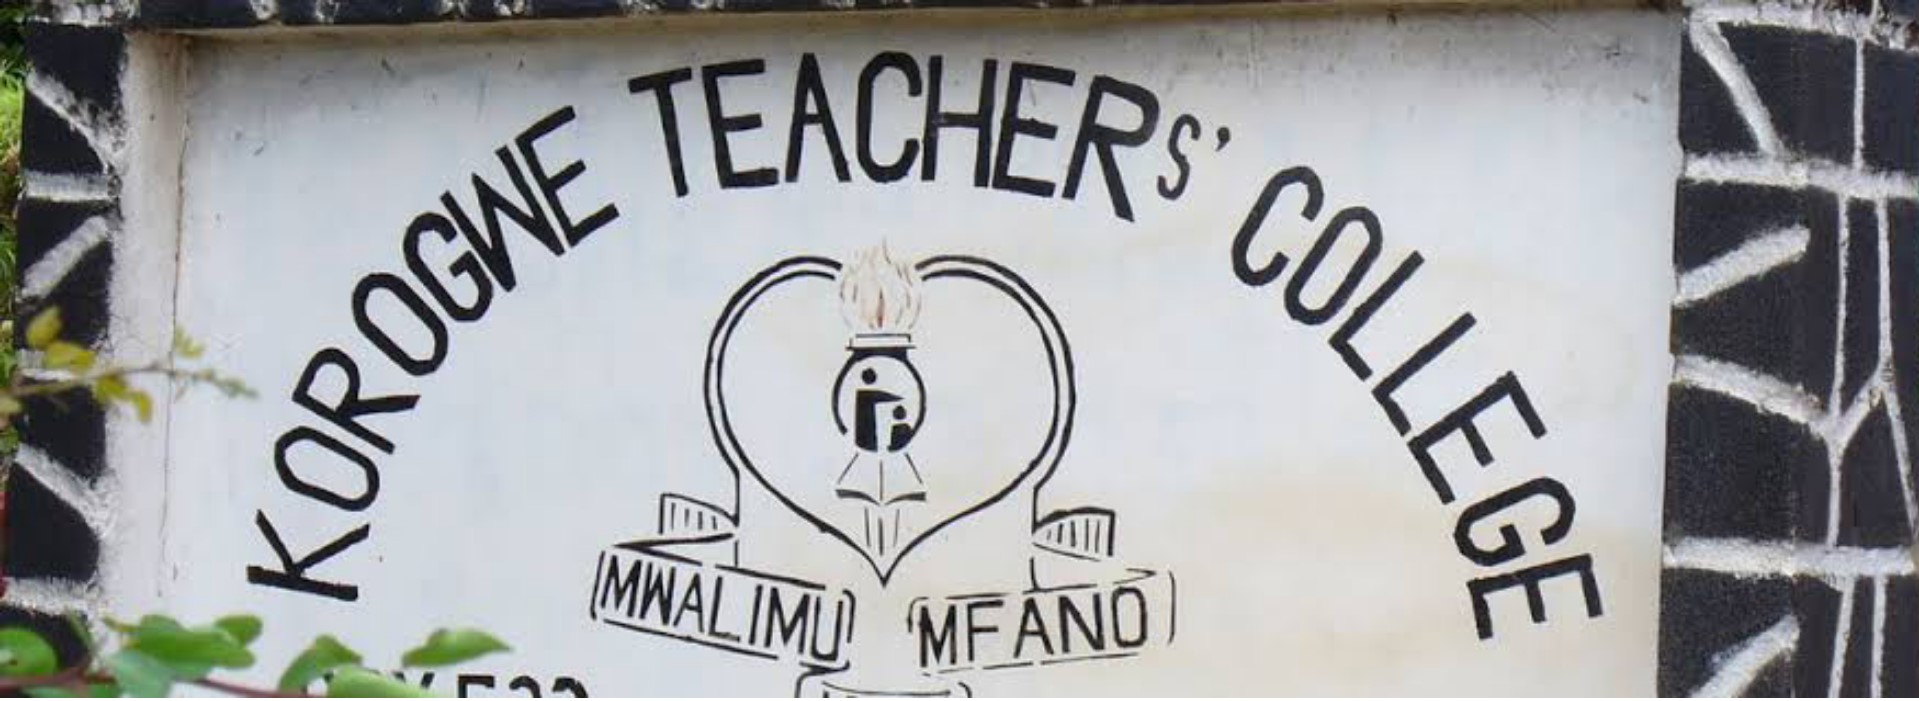 KOROGWE TEACHERS' COLLEGE
MWALIMU MFANO